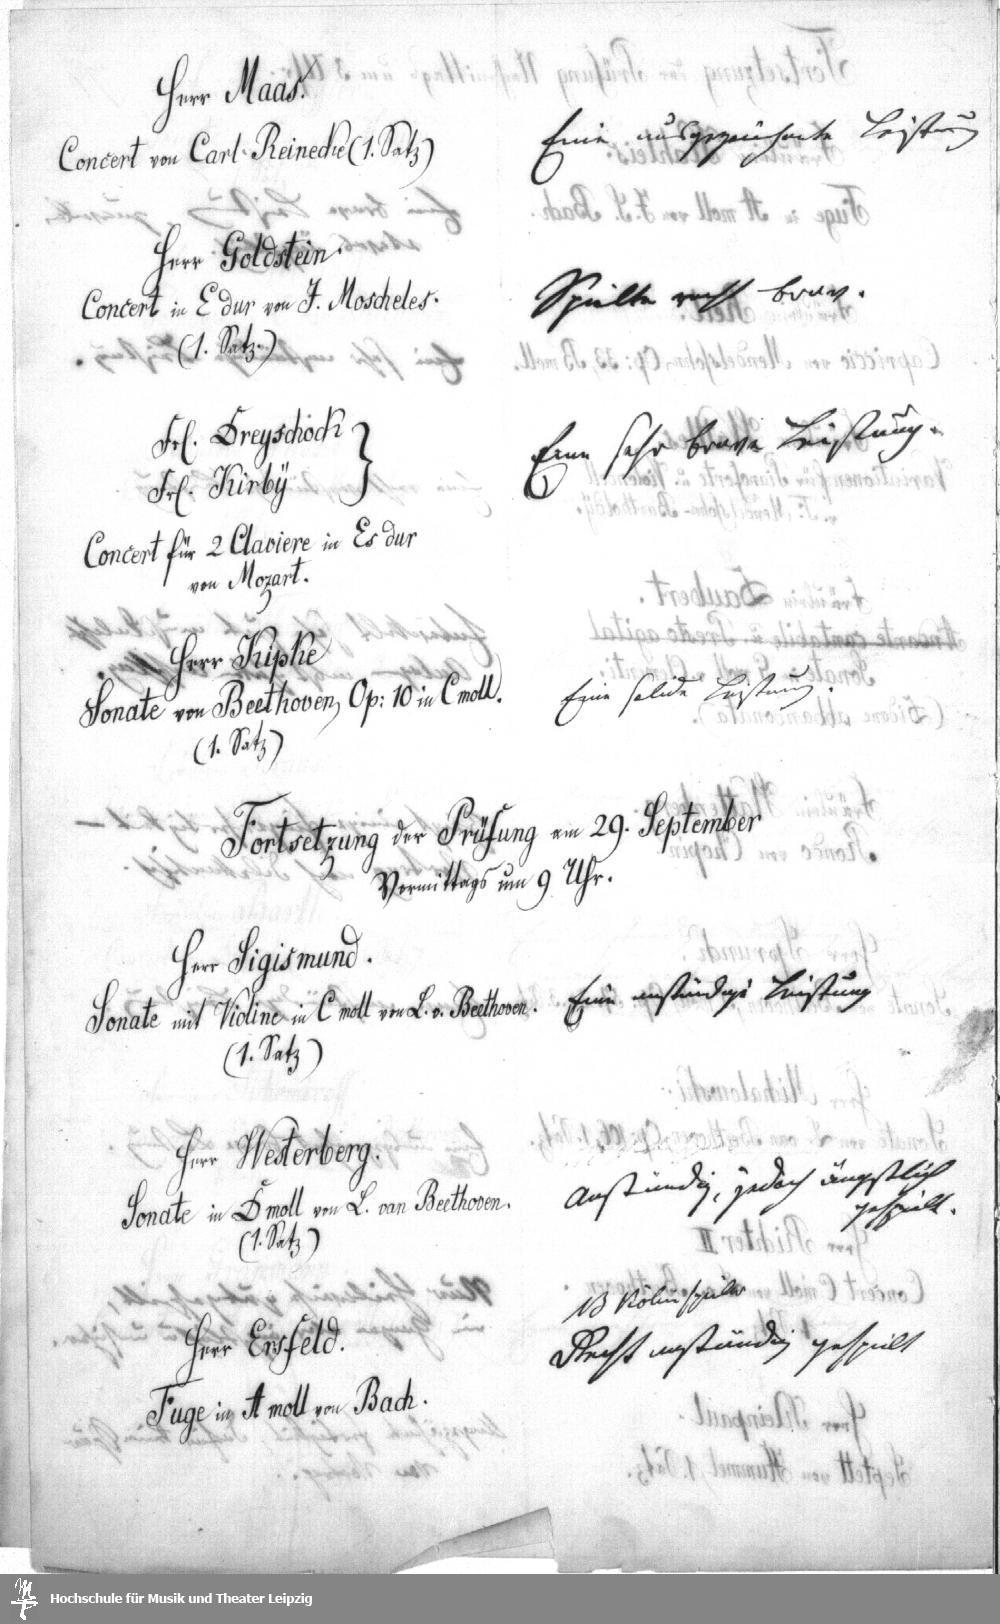 Herr Maas.
Concert von Carl Reinecke (1. Satz)
Eine ausgezeichnete Leistung
Herr Goldstein.
Concert in E dur von J. Moscheles.
(1. Satz.)
Spielte recht brav.
Frl. Dreyschock
Frl. Kirby
Eine sehr brave Leistung.
Concert für 2 Claviere in Es dur
von Mozart.
Herr Kipke
Sonate von Beethoven, Op: 10 in C moll.
(1. Satz)
Eine solide Leistung.
Fortsetzung der Prüfung am 29. September
Vormittags um 9 Uhr.
Herr Sigismund.
Sonate mit Violine in C moll von L. v. Beethoven.
(1. Satz)
Eine anständige Leistung
Herr Westerberg.
Sonate in D moll von L. van Beethoven.
(1. Satz)
Anständig, jedoch ängstlich
gespielt.
Herr Ersfeld.
Fuge in A moll von Bach.
NB
Recht anständig gespielt
Hochschule für Musik und Theater Leipzig